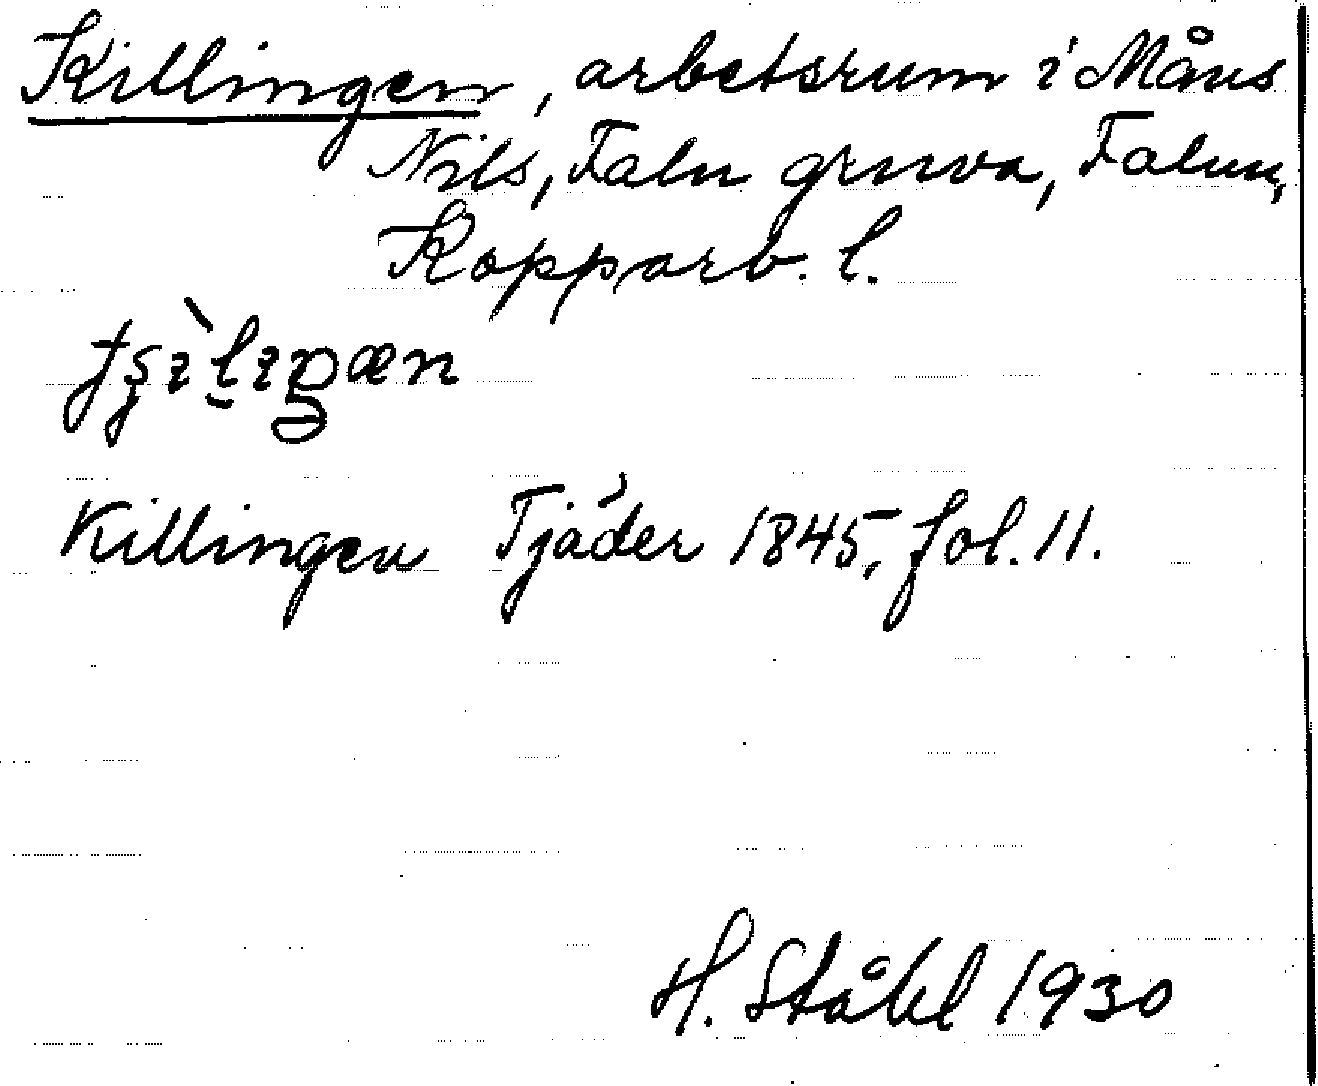 Killingen, arbetsrum i Måns
Nils, Falu gruva, Falun,
Kopparb. l.
Killingen Tjäder 1845, fol. 11.
H. Ståhl 1930